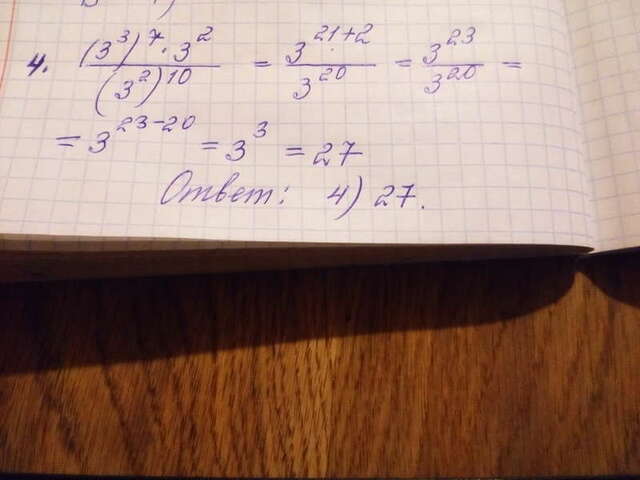 4. ((3^3)^7 · 3^2) / (3^2)^10 = 3^(21+2) / 3^20 = 3^23 / 3^20 =
= 3^(23-20) = 3^3 = 27
Ответ: 4) 27.